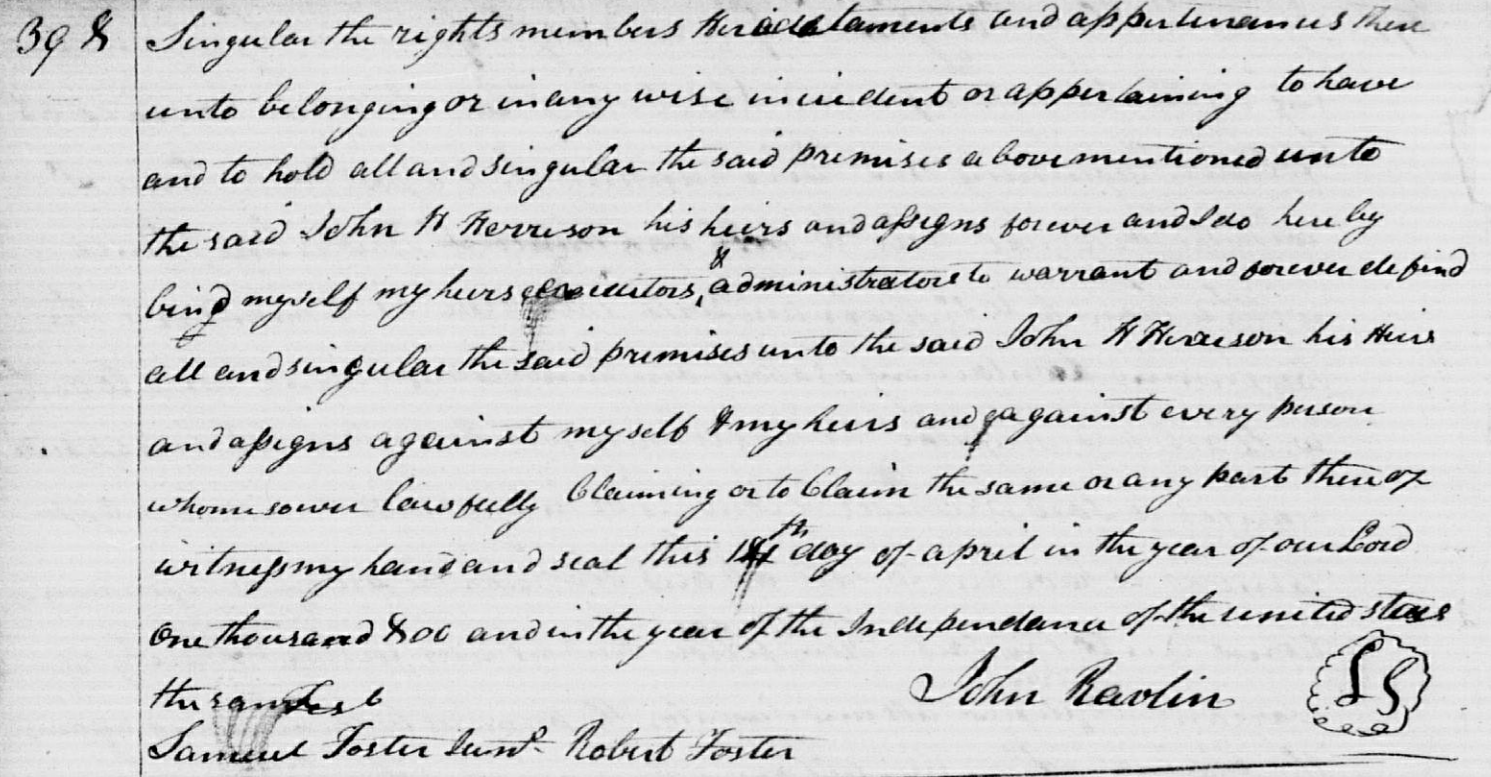 398
Singular the rights members Heriditaments and appertinances there
unto belonging or in any wise incident or appertaining to have
and to hold all and singular the said premises above mentioned unto
the said John H Herreson his heirs and assigns forever and I do here by
bind myself my heirs executors, & administrators to warrant and forever defind
all and singular the said premises unto the said John H Herreson his Heirs
and assigns against myself & my heirs and against every person
whomesoever lawfully Claiming or to Claim the same or any part there of
witness my hand and seal this 14th day of april in the year of our Lord
One thousand 800 and in the year of the Independance of the united states
the same Test
John Ravlin LS
Samuel Foster Junr Robert Foster